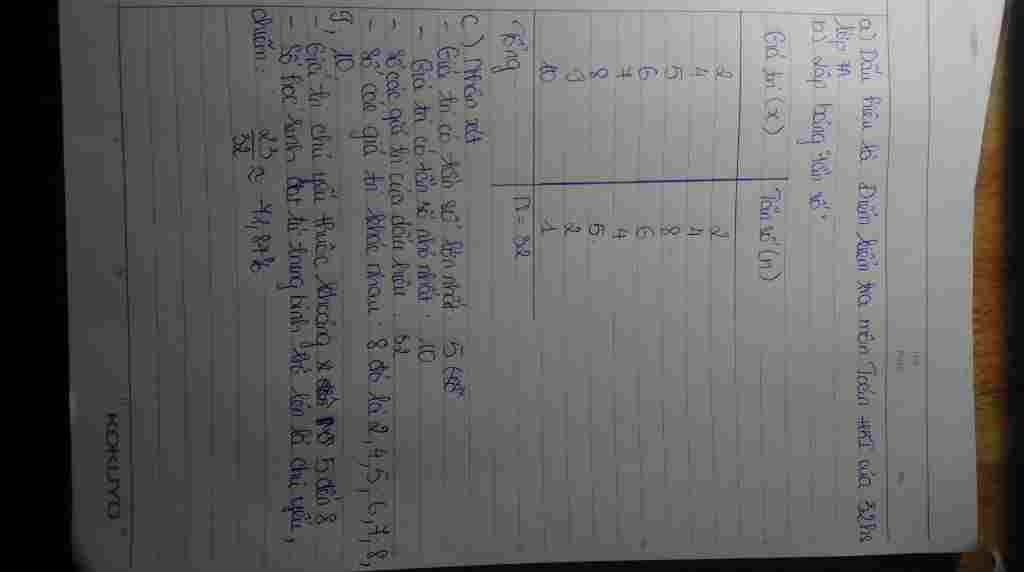 a) Dấu hiệu là Điểm kiểm tra môn Toán HKI của 32hs
lớp 7A
b) Lập bảng "tần số"
Giá trị (x) Tần số (n)
2 2
4 4
5 8
6 6
7 4
8 5
9 2
10 1
Tổng n = 32
c) Nhận xét
- Giá trị có tần số lớn nhất: 5
- Giá trị có tần số nhỏ nhất: 10
- Số các giá trị của dấu hiệu: 32
- Số các giá trị khác nhau: 8 đó là 2, 4, 5, 6, 7, 8,
9, 10
- Giá trị chủ yếu thuộc khoảng 5 đến 8
- Số học sinh đạt từ trung bình trở lên là chủ yếu,
chiếm: 23/32 ≈ 71,87%
KOKUYO